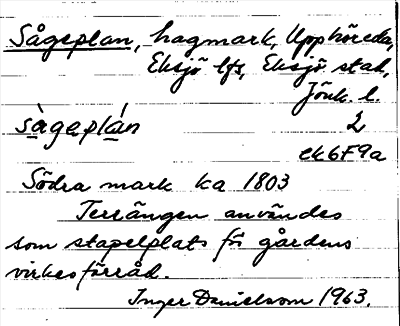 Sågeplan, hagmark, Upphöreda,
Eksjö lfs, Eksjö stad,
Jönk. l.
sàgɐplán 2
ek6F9a
Södra mark ka 1803
Terrängen användes
som stapelplats för gårdens
virkesförråd.
Inger Danielsson 1963.